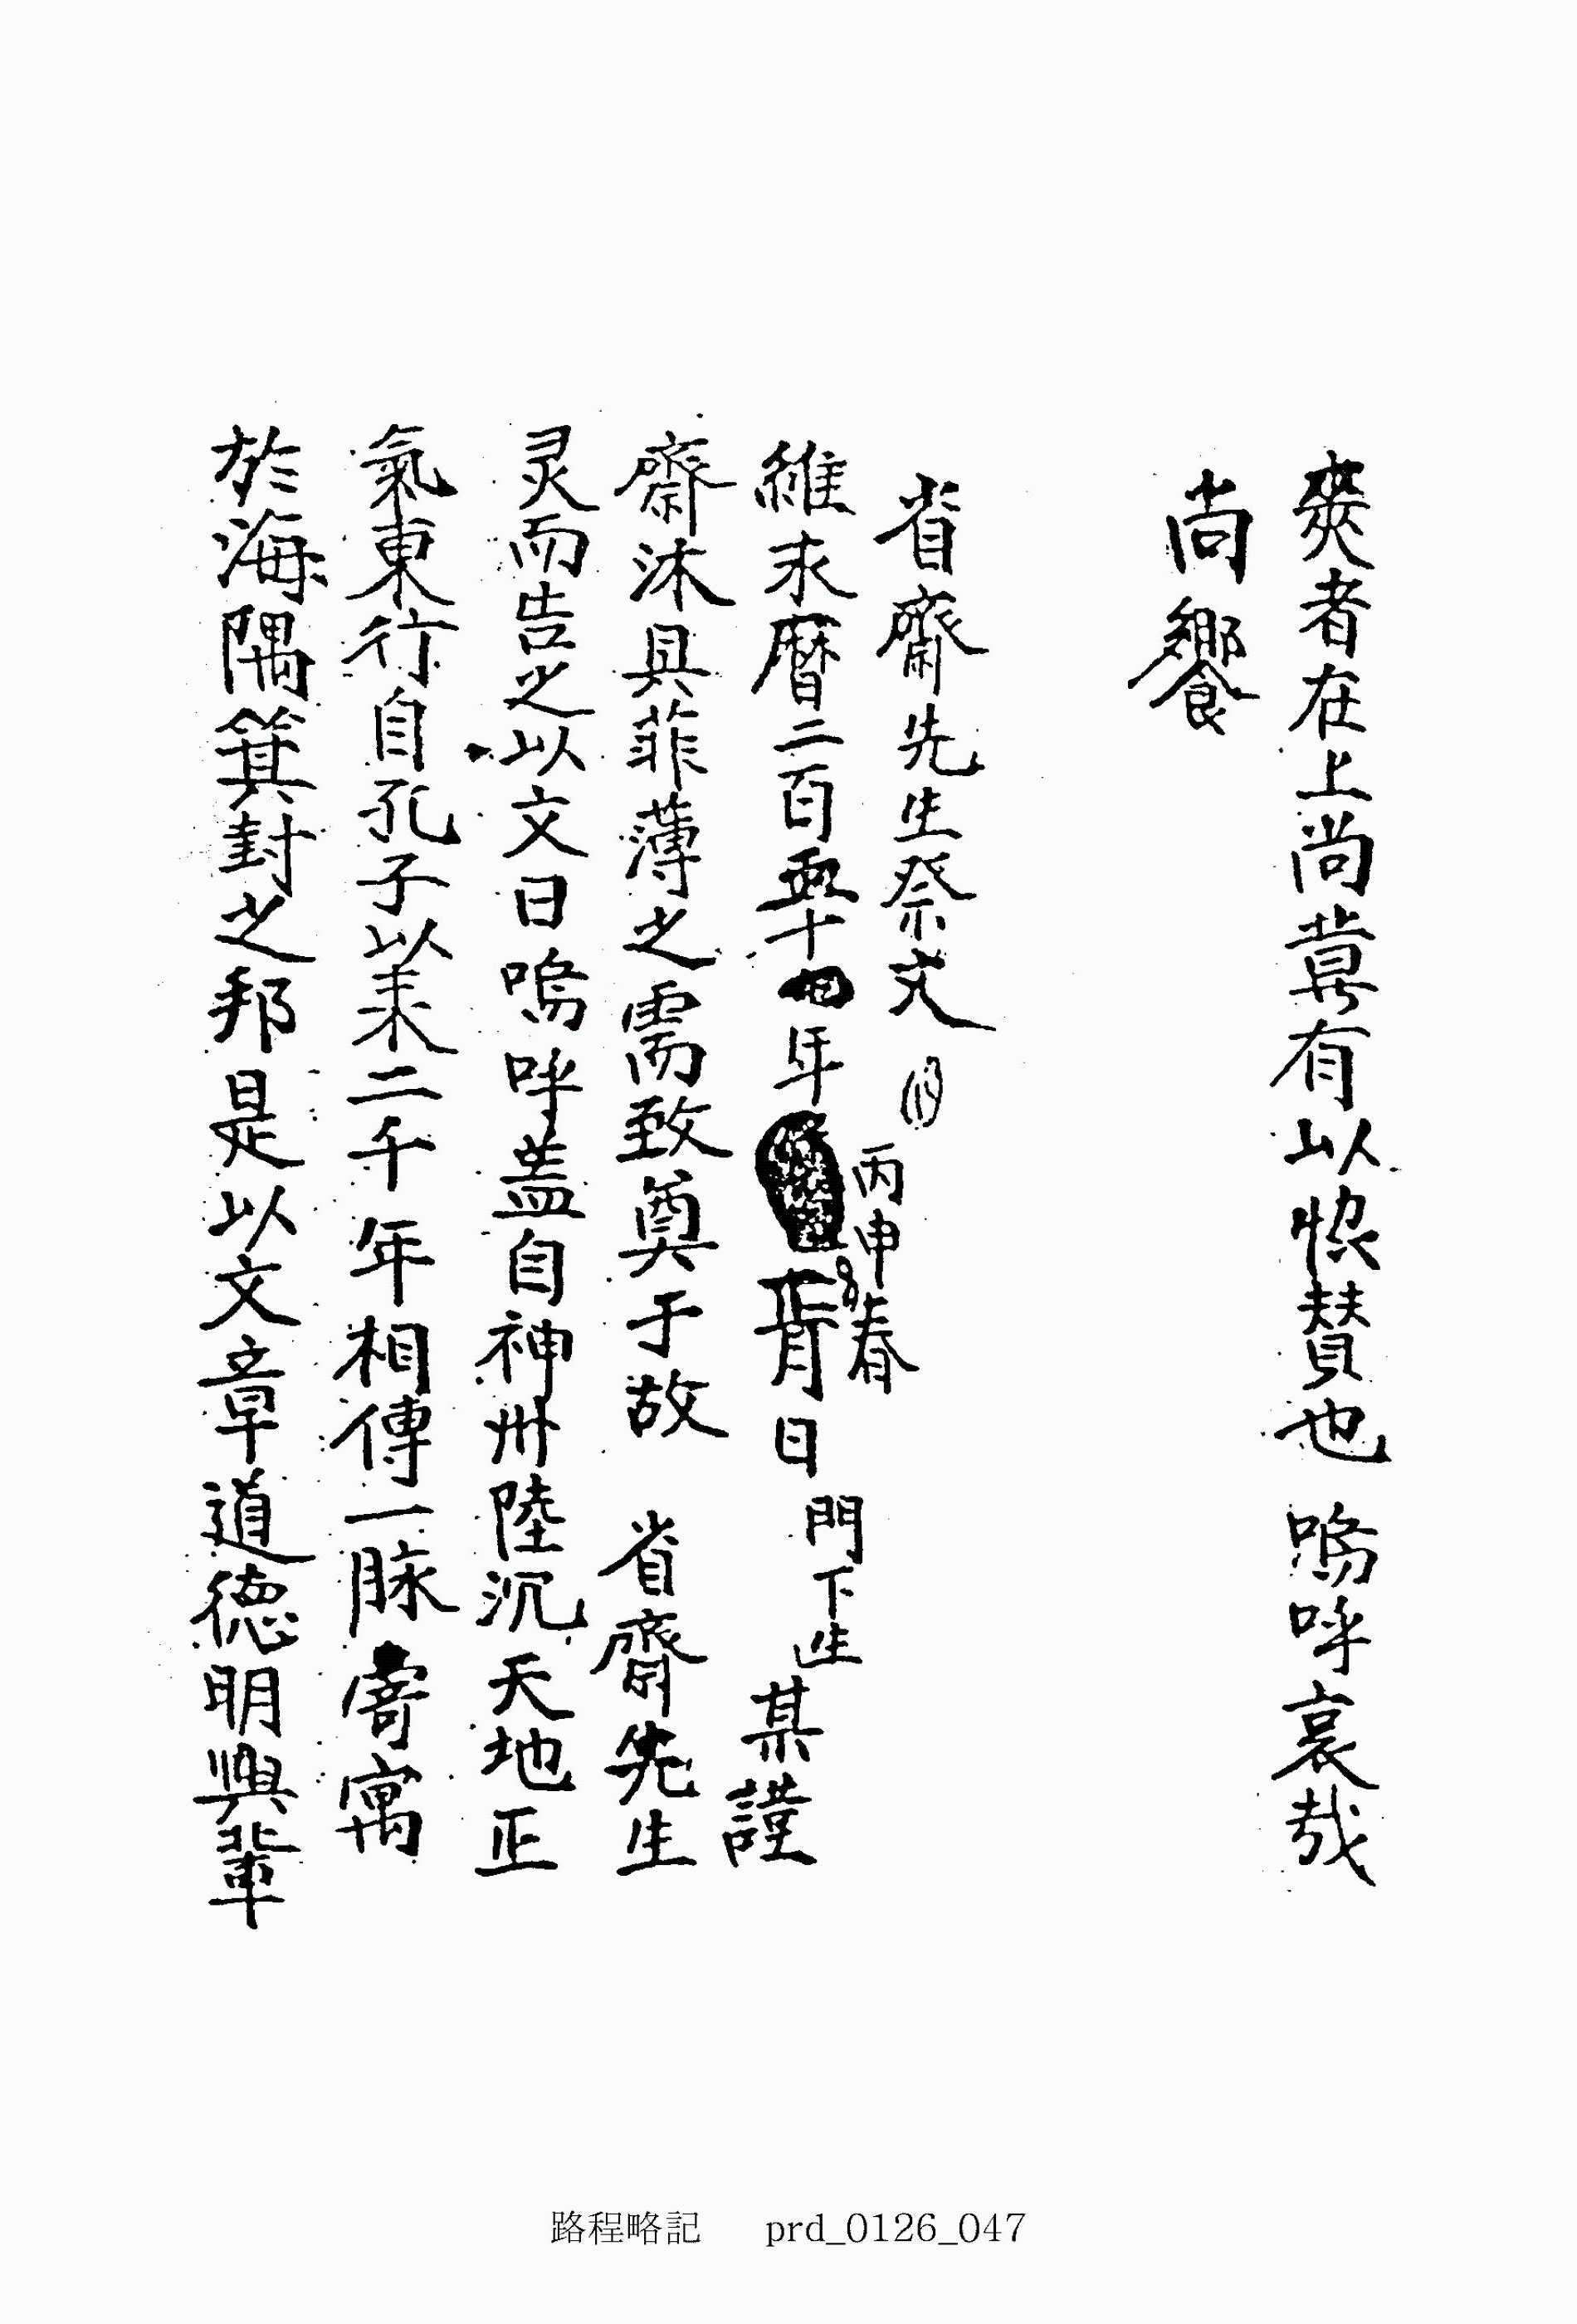 爽者在上尚冀有以恷賛也 嗚呼哀哉
尚饗
省齋先生祭文 丙申春
維永曆二百 十 年 月日 門下生某謹
齋沐具菲薄之需致奠于故 省齋先生
灵而告之以文曰嗚呼盖自神州陸沉天地正
氣東行自孔子以来二千年相傳一脉寄寓
於海隅箕封之邦是以文章道德明興輩
路程略記 prd_0126_047